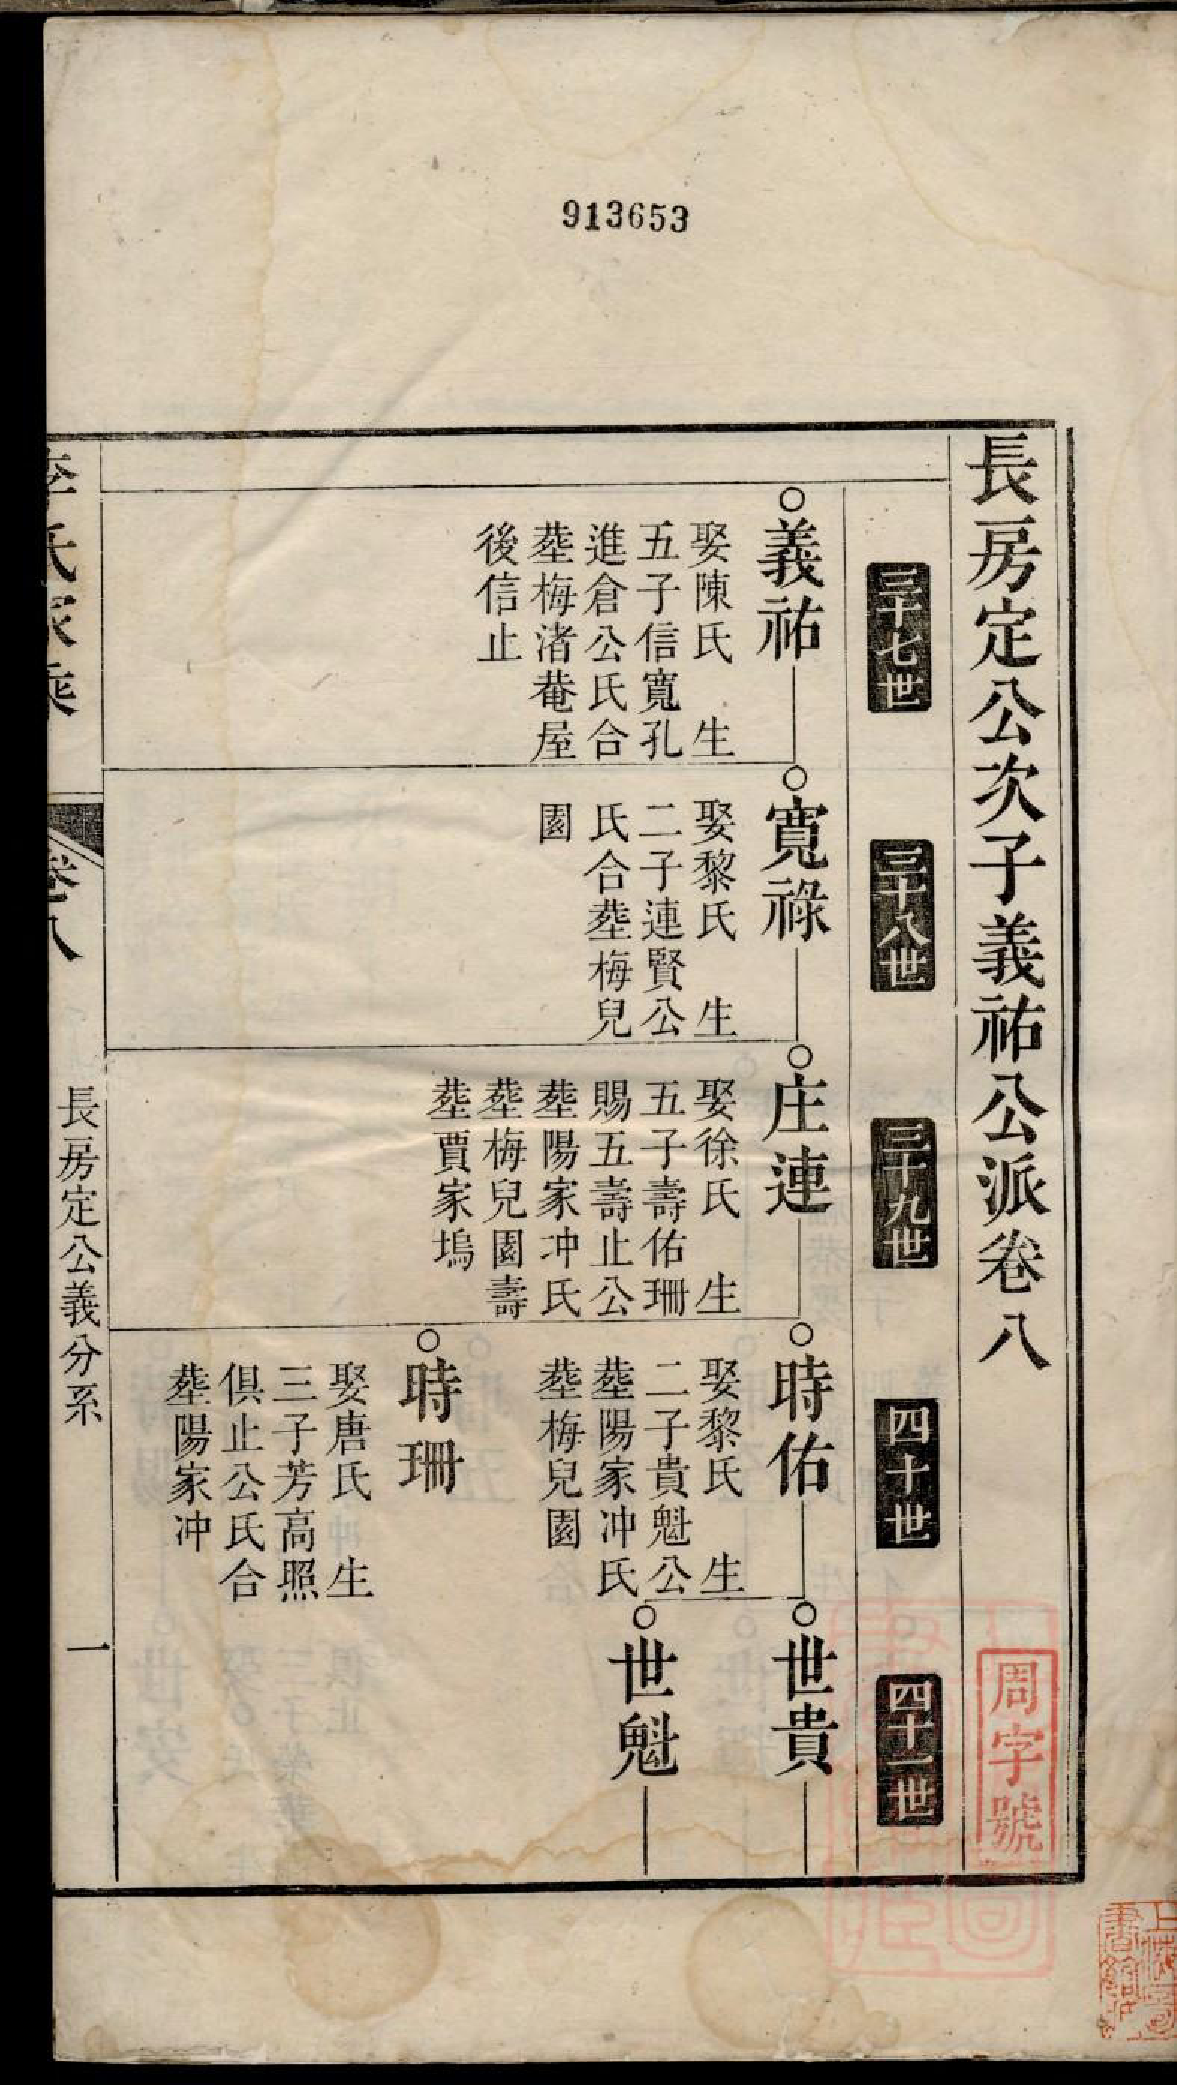 913653
長房定公次子義祐公派卷八
三十七世
三十八世
三十九世
四十世
四十一世
周字號
義祐
娶陳氏　生
五子信寬孔
進倉公氏合
塟梅渚菴屋
後信止
寬祿
娶黎氏　生
二子連賢公
氏合塟梅兒
園
庄連
娶徐氏　生
五子壽佑珊
賜五壽止公
塟陽家冲氏
塟梅兒園壽
塟賈家塢
時佑
娶黎氏　生
二子貴魁公
塟陽家冲氏
塟梅兒園
時珊
娶唐氏　生
三子芳高照
俱止公氏合
塟陽家冲
世貴
世魁
李氏家乘
卷八
長房定公義分系
一